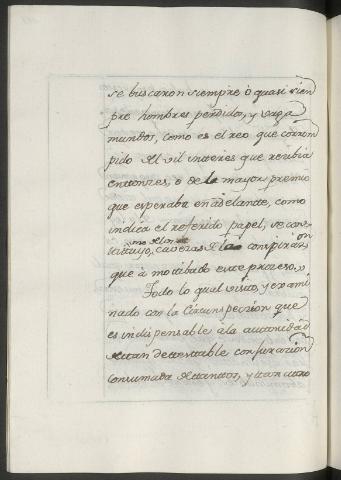 se buscaron siempre ò quasi siem
pre hombres perdidos, y vaga
mundos, como es el reo que corrom
pido del vil interes que recibia
entonzes, o de la mayor premio
que esperaba en adelante, como
indica el referido papel, se cons
uno de los
tituyo, cavezas de la conspiraz.on
que à motibado este prozeso, y
Todo lo qual visto, y exami
nado con la Circunspeccion que
es indispensable à la autoridad
de tan detestable conjurazion
consumada de tantos, y tan